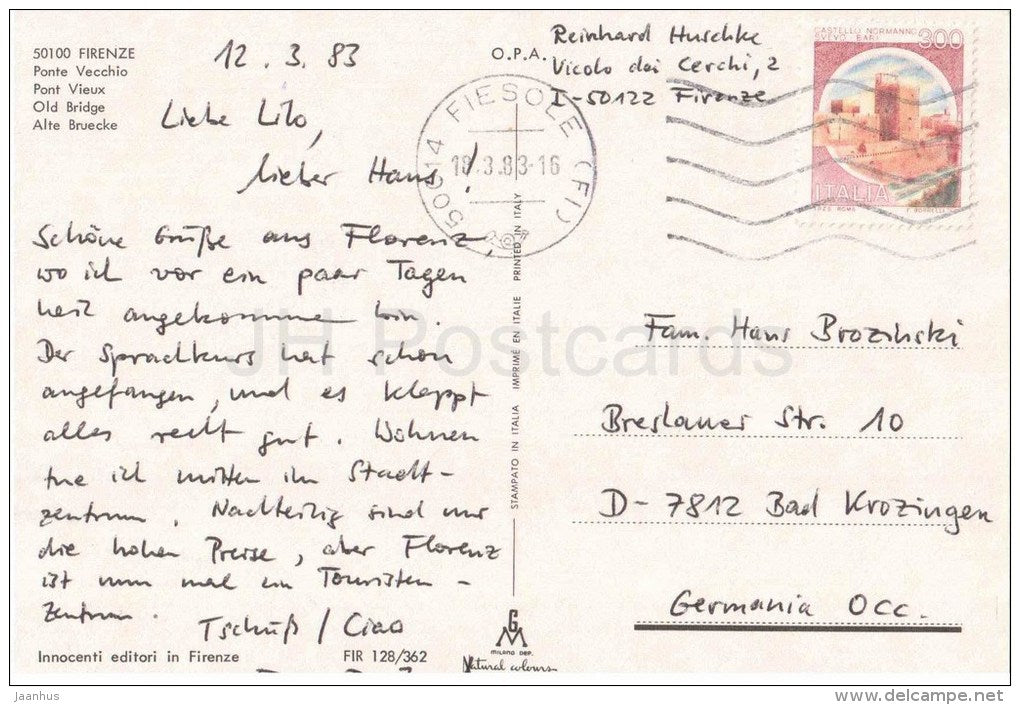 50100 FIRENZE
Ponte Vecchio
Pont Vieux
Old Bridge
Alte Bruecke
12.3.83
Liebe Lilo,
lieber Hans!
Schöne Grüße aus Florenz,
wo ich vor ein paar Tagen
heil angekommen bin.
Der Sprachkurs hat schon
angefangen, und es klappt
alles recht gut. Wohnen
tue ich mitten im Stadt-
zentrum. Nachteilig sind nur
die hohen Preise, aber Florenz
ist nun mal ein Touristen-
zentrum.
Tschüß / Ciao
Innocenti editori in Firenze
FIR 128/362
O.P.A.
50014 FIESOLE (FI)
18.3.83-16
STAMPATO IN ITALIA IMPRIMÉ EN ITALIE PRINTED IN ITALY
GM
MILANO DEP.
Natural colours
Reinhard Huschke
Vicolo dei Cerchi, 2
I-50122 Firenze
CASTELLO NORMANNO
SVEVO BARI
300
ITALIA
I.P.Z.S. ROMA
Fam. Hans Brozinski
Breslauer Str. 10
D-7812 Bad Krozingen
Germania Occ.
JH Postcards
jaanhus
www.delcampe.net